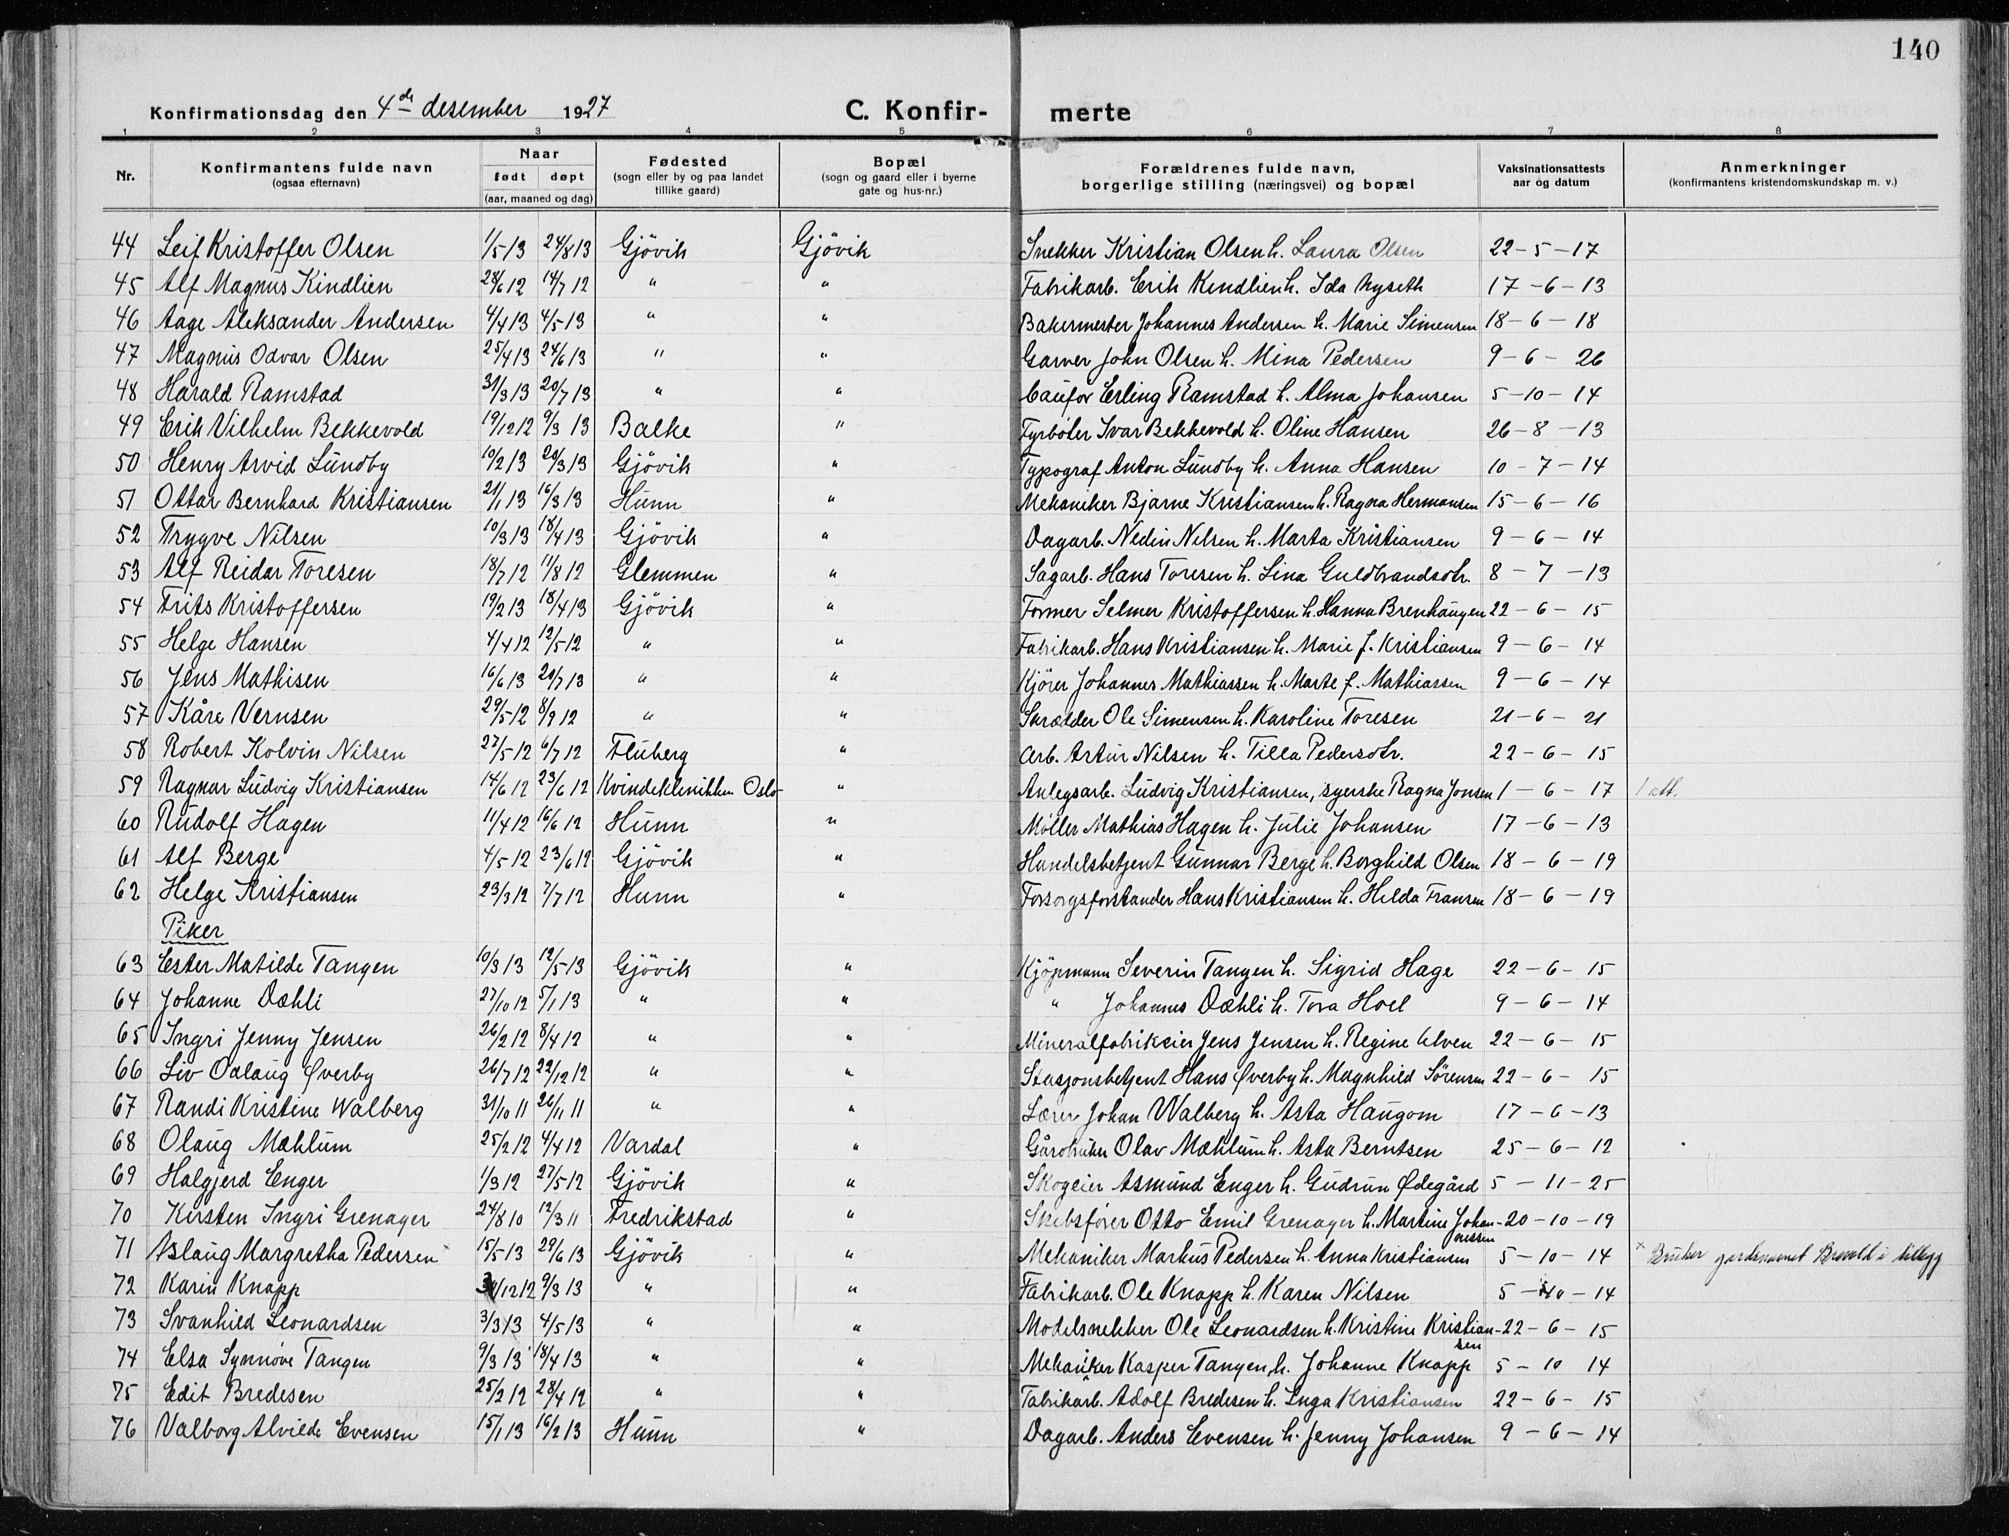 140
Konfirmationsdag den 4de desember 1927 C. Konfir- merte
1 2 3 4 5 6 7 8
Nr. Konfirmantens fulde navn (ogsaa efternavn) Naar født døpt (aar, maaned og dag) Fødested (sogn eller by og paa landet tillike gaard) Bopæl (sogn og gaard eller i byerne gate og hus-nr.) Forældrenes fulde navn, borgerlige stilling (næringsvei) og bopæl Vaksinationsattests aar og datum Anmerkninger (konfirmantens kristendomskundskap m. v.)
44 Leif Kristoffer Olsen 1/5 13 24/8 13 Gjövik Gjövik Snekker Kristian Olsen h. Laura Olsen 22-5-17
45 Alf Magnus Kindlien 28/6 12 14/7 12 " " Fabrikarb. Erik Kindlien h. Ida Nyseth 17-6-13
46 Aage Aleksander Andersen 4/4 13 4/5 13 " " Bakermester Johannes Andersen h. Marie Simensen 18-6-18
47 Magnus Odvar Olsen 25/4 13 24/6 13 " " Garver John Olsen h. Mina Pedersen 9-6-26
48 Harald Ramstad 31/3 13 20/7 13 " " Caufør Erling Ramstad h. Alma Johansen 5-10-14
49 Erik Vilhelm Bekkevold 19/12 12 9/3 13 Balke " Fyrbøter Ivar Bekkevold h. Oline Hansen 26-8-13
50 Henry Arvid Lundby 10/2 13 20/3 13 Gjövik " Typograf Anton Lundby h. Anna Hansen 10-7-14
51 Ottar Bernhard Kristiansen 21/1 13 16/3 13 Hunn " Mekaniker Bjarne Kristiansen h. Ragna Hermansen 15-6-16
52 Trygve Nilsen 10/3 13 18/4 13 Gjövik " Dagarb. Nedin Nilsen h. Marta Kristiansen 9-6-14
53 Alf Reidar Toresen 18/7 12 11/8 12 Glemmen " Sagarb. Hans Toresen h. Lina Guldbrandsdtr. 8-7-13
54 Frits Kristoffersen 19/2 13 18/4 13 Gjövik " Former Selmer Kristoffersen h. Hanna Brenhaugen 22-6-15
55 Helge Hansen 4/4 12 12/5 12 " " Fabrikarb. Hans Kristiansen h. Marie f. Kristiansen 9-6-14
56 Jens Mathisen 16/6 13 20/7 13 " " Kjörer Johannes Mathiassen h. Marte f. Mathiassen 9-6-14
57 Kåre Vernsen 29/5 12 8/9 12 " " Skrædder Ole Simensen h. Karoline Toresen 21-6-21
58 Robert Kolvin Nilsen 27/5 12 6/7 12 Fluberg " Arb. Artur Nilsen h. Tilla Pedersdtr. 22-6-15
59 Ragnar Ludvig Kristiansen 14/6 12 23/6 12 Kvindeklinikken Oslo " Anlegsarb. Ludvig Kristiansen, syerske Ragna Jonsen 1-6-17 1 att.
60 Rudolf Hagen 11/4 12 16/6 12 Hunn " Møller Mathias Hagen h. Julie Johansen 17-6-13
61 Alf Berge 4/5 12 23/6 12 Gjövik " Handelsbetjent Gunnar Berge h. Borghild Olsen 18-6-19
62 Helge Kristiansen 23/3 12 7/7 12 Hunn " Forsorgsforstander Hans Kristiansen h. Helda Fransen 18-6-19
Piker
63 Ester Matilde Tangen 10/3 13 12/5 13 Gjövik " Kjöpmann Severin Tangen h. Sigrid Hage 22-6-15
64 Johanne Dæhli 27/10 12 5/1 13 " " " Johannes Dæhli h. Tora Hoel 9-6-14
65 Ingri Jenny Jensen 26/2 12 8/4 12 " " Mineralfabrikeier Jens Jensen h. Regine Alven 22-6-15
66 Liv Oalaug Øverby 26/7 12 22/12 12 " " Stasjonsbetjent Hans Øverby h. Magnhild Sörensen 22-6-15
67 Randi Kristine Walberg 31/10 11 26/11 11 " " Lærer Johan Walberg h. Asta Haugom 17-6-13
68 Olaug Mæhlum 25/2 12 4/4 12 Vardal " Gårdbruker Olav Mæhlum h. Asta Berntsen 25-6-12
69 Halgjerd Enger 1/3 12 27/5 12 Gjövik " Skogeier Asmund Enger h. Gudrun Ødegård 5-11-25
70 Kirsten Ingri Grenager 24/8 10 12/3 11 Fredrikstad " Skibsfører Otto Emil Grenager h. Martine Johannessen 20-10-19
71 Aslaug Margretha Pedersen 15/5 13 29/6 13 Gjövik " Mekaniker Markus Pedersen h. Anna Kristiansen 5-10-14 × Bruker gardsnavnet i tillegg
72 Karin Knapp /12 12 9/3 13 " " Fabrikarb. Ole Knapp h. Karen Nilsen 5-10-14
73 Svanhild Leonardsen 3/3 13 4/5 13 " " Modelsnekker Ole Leonardsen h. Kristine Kristiansen 22-6-15
74 Elsa Synnöve Tangen 9/3 13 18/4 13 " " Mekaniker Kasper Tangen h. Johanne Knapp 5-10 14
75 Edit Bredesen 25/2 12 28/4 12 " " Fabrikarb. Adolf Bredesen h. Inga Kristiansen 22-6-15
76 Valborg Alvilde Evensen 15/1 13 16/2 13 Hunn " Dagarb. Anders Evensen h. Jenny Johansen 9-6-14